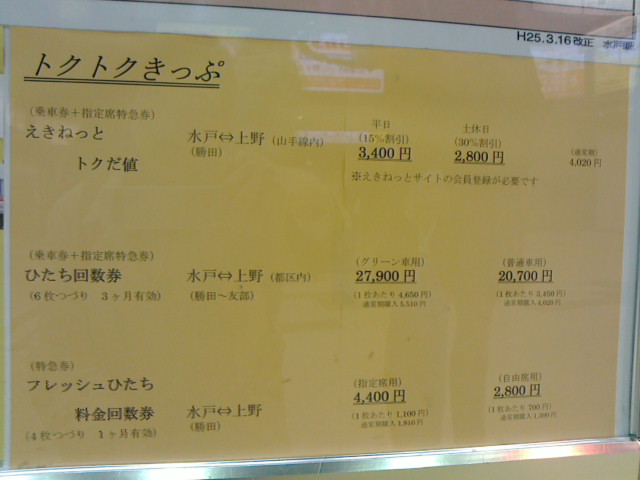 H25.3.16改正 水戸駅
トクトクきっぷ
(乗車券+指定席特急券)
えきねっと
トクだ値
水戸⇔上野 (山手線内)
(勝田)
平日
(15%割引)
3,400円
土休日
(30%割引)
2,800円
(通常期)
4,020円
※えきねっとサイトの会員登録が必要です
(乗車券+指定席特急券)
ひたち回数券
(6枚つづり 3ヶ月有効)
水戸⇔上野 (都区内)
(勝田~友部)
(グリーン車用)
27,900円
(1枚あたり4,650円)
通常期購入5,510円
(普通車用)
20,700円
(1枚あたり3,450円)
通常期購入4,020円
(特急券)
フレッシュひたち
料金回数券
(4枚つづり 1ヶ月有効)
水戸⇔上野
(勝田)
(指定席用)
4,400円
(1枚あたり1,100円)
通常期購入1,810円
(自由席用)
2,800円
(1枚あたり700円)
通常期購入1,300円